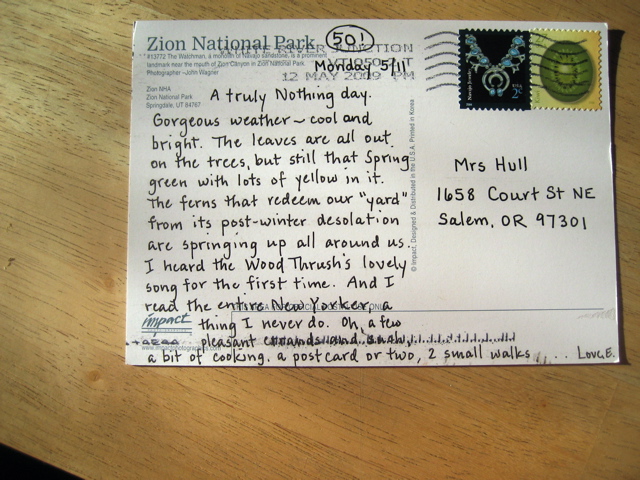 50!
Zion National Park
WHITE RIVER JUNCTION
#13772 The Watchman, a monolith of Navajo sandstone, is a prominent
landmark near the mouth of Zion Canyon in Zion National Park.
Photographer - John Wagner
Monday 5/11
12 MAY 2009 PM
Zion NHA
Zion National Park
Springdale, UT 84767
A truly Nothing day.
Gorgeous weather ~ cool and
bright. The leaves are all out
on the trees, but still that Spring
green with lots of yellow in it.
The ferns that redeem our "yard"
from its post-winter desolation
are springing up all around us.
I heard the Wood Thrush's lovely
song for the first time. And I
read the entire New Yorker, a
thing I never do. Oh, a few
pleasant errands and such,
a bit of cooking, a postcard or two, 2 small walks . . . Love, E.
impact
© Impact, Designed & Distributed in the U.S.A. Printed in Korea
Navajo Jewelry
USA
2¢
Mrs Hull
1658 Court St NE
Salem, OR 97301